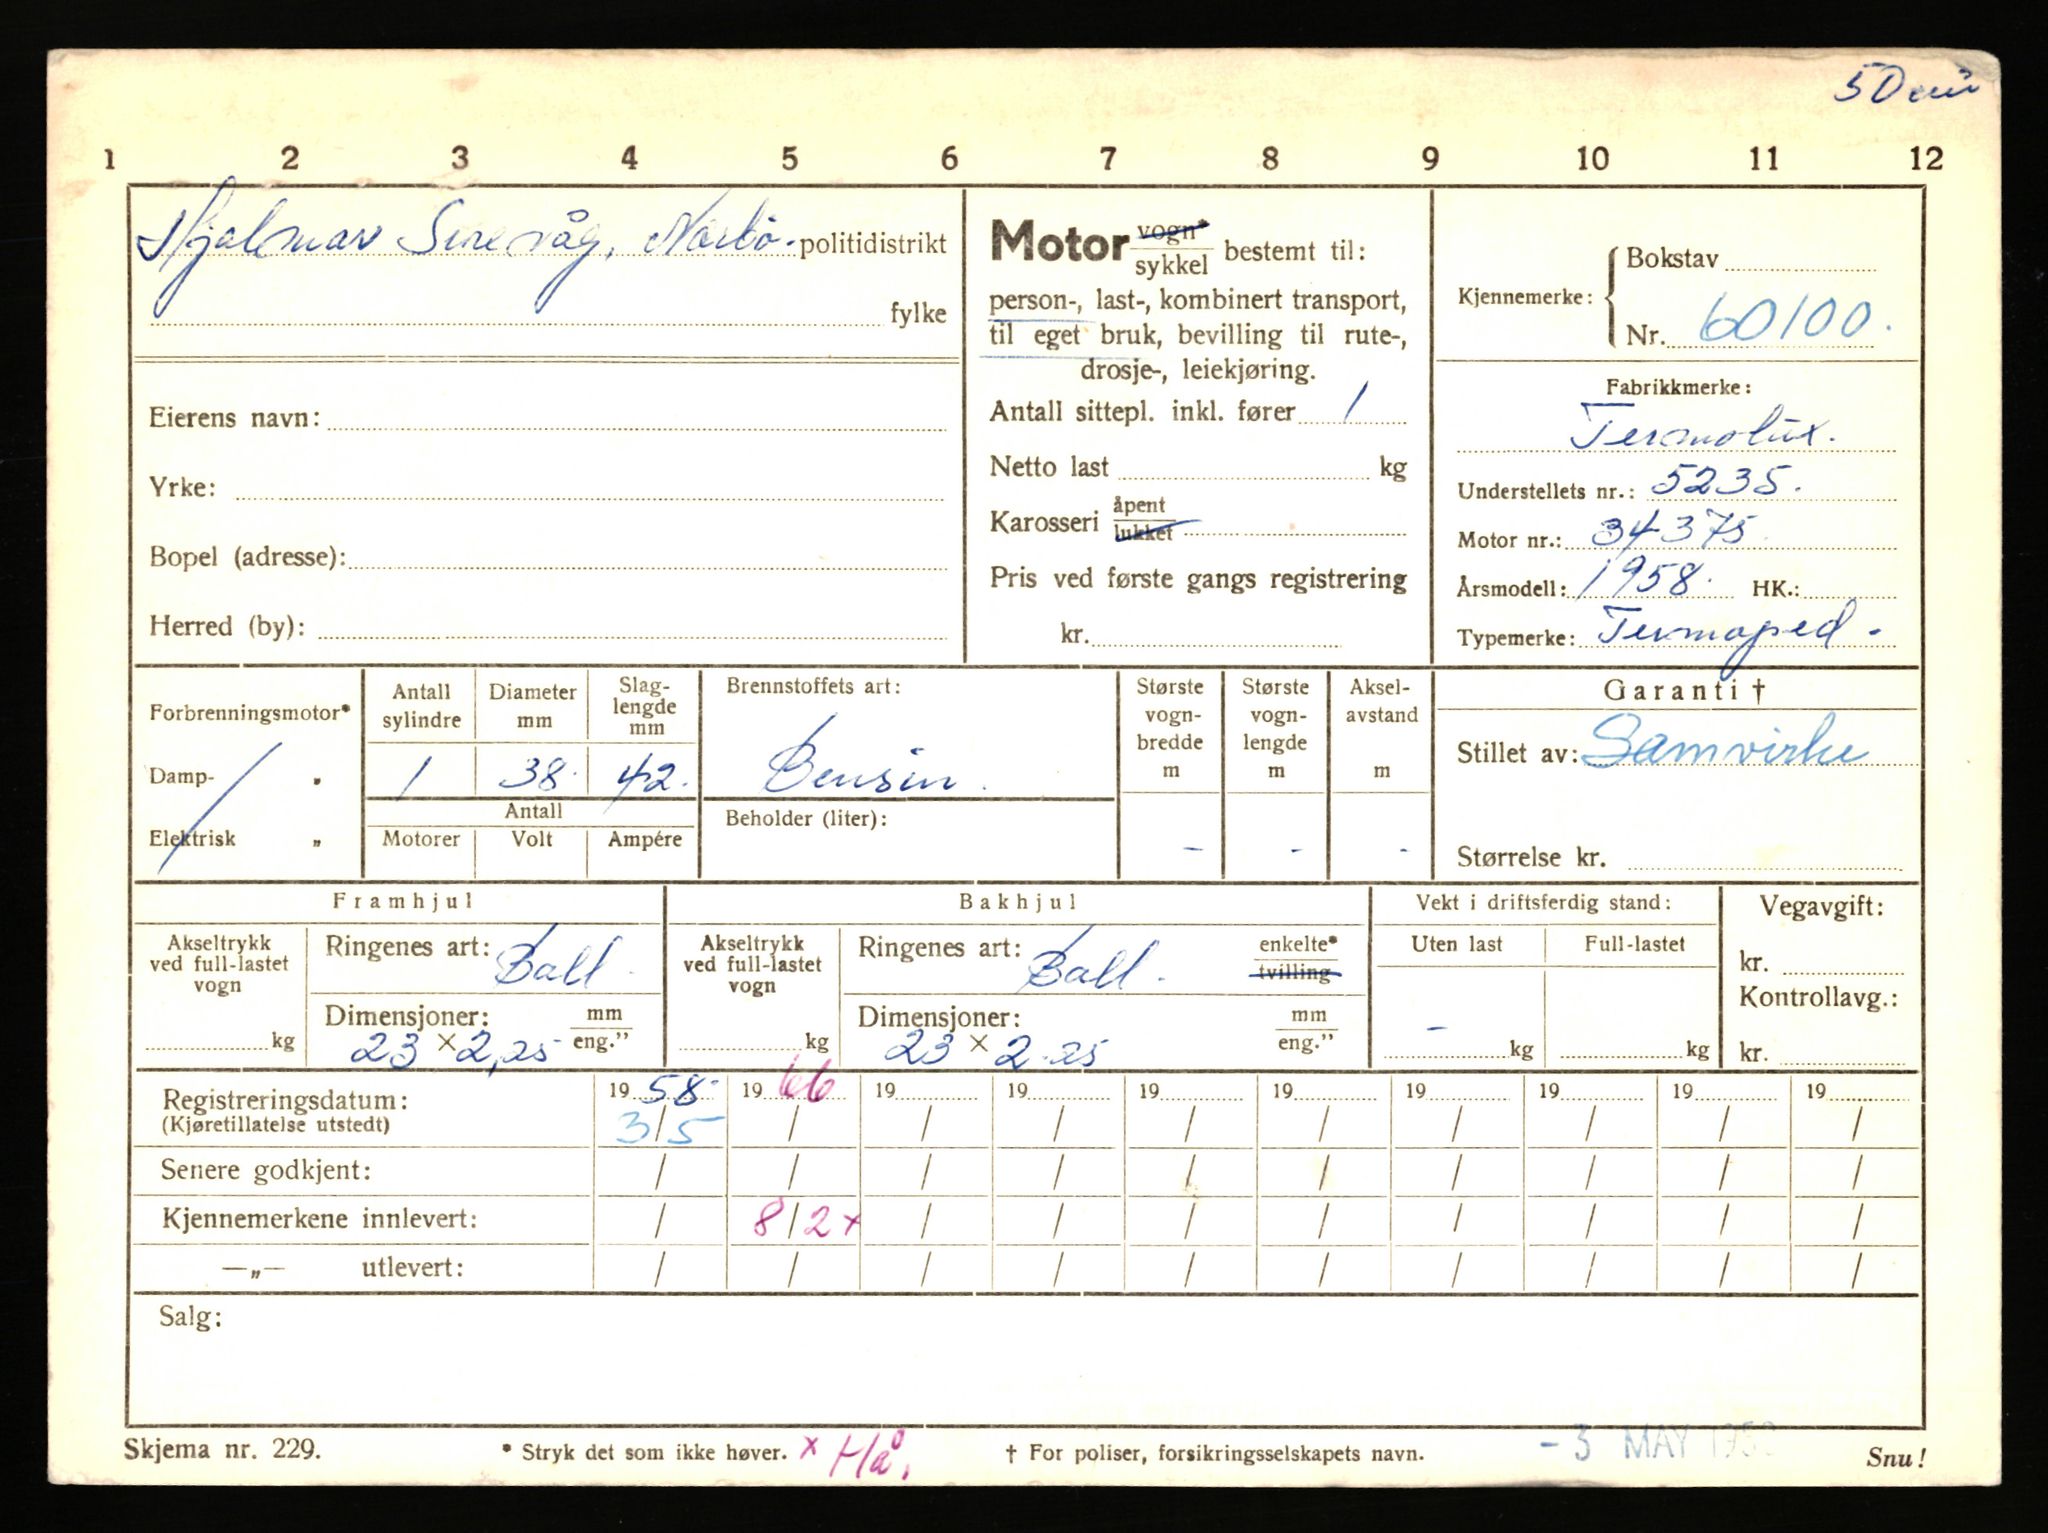 50 cm³
1 2 3 4 5 6 7 8 9 10 11 12
Hjalmar Sirevåg, Nærbø. politidistrikt
fylke
Eierens navn:
Yrke:
Bopel (adresse):
Herred (by):
Motor vogn* sykkel bestemt til:
person-, last-, kombinert transport,
til eget bruk, bevilling til rute-,
drosje-, leiekjøring.
Antall sittepl. inkl. fører 1
Netto last kg
Karosseri åpent lukket
Pris ved første gangs registrering
kr.
Kjennemerke: Bokstav
Nr. 60100.
Fabrikkmerke:
Termolux.
Understellets nr.: 5235.
Motor nr.: 34375
Årsmodell: 1958. HK.:
Typemerke: Termoped.
Forbrenningsmotor*
Damp- "
Elektrisk "
Antall sylindre
1
Diameter mm
38.
Slag-
lengde
mm
42.
Antall
Motorer Volt Ampére
Brennstoffets art:
Bensin.
Beholder (liter):
Største
vogn-
bredde
m
-
Største
vogn-
lengde
m
-
Aksel-
avstand
m
-
Garanti †
Stillet av: Samvirke
Størrelse kr.
Framhjul
Akseltrykk
ved full-lastet
vogn
kg
Ringenes art: Ball.
Dimensjoner: mm
23 x 2,25 eng."
Bakhjul
Akseltrykk
ved full-lastet
vogn
kg
Ringenes art: Ball. enkelte*
tvilling
Dimensjoner: mm
23 x 2.25 eng."
Vekt i driftsferdig stand:
Uten last Full-lastet
-
kg kg
Vegavgift:
kr.
Kontrollavg.:
kr.
Registreringsdatum: 19 58. 19 66 19 19 19 19 19 19 19 19
(Kjøretillatelse utstedt) 3/5 / / / / / / / / /
Senere godkjent: / / / / / / / / / /
Kjennemerkene innlevert: / 8/2 x / / / / / / / /
—„— utlevert: / / / / / / / / / /
Salg:
Skjema nr. 229. * Stryk det som ikke høver. x Hå. † For poliser, forsikringsselskapets navn. - 3 MAY 1958 Snu!